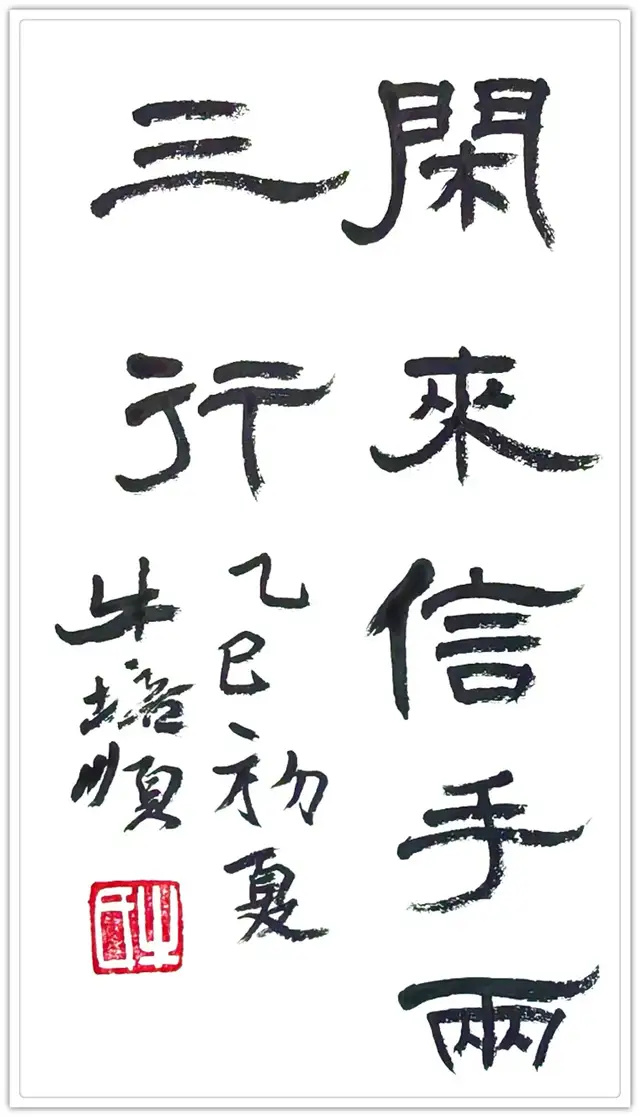 閑來信手兩
三行
乙巳初夏
牛培順